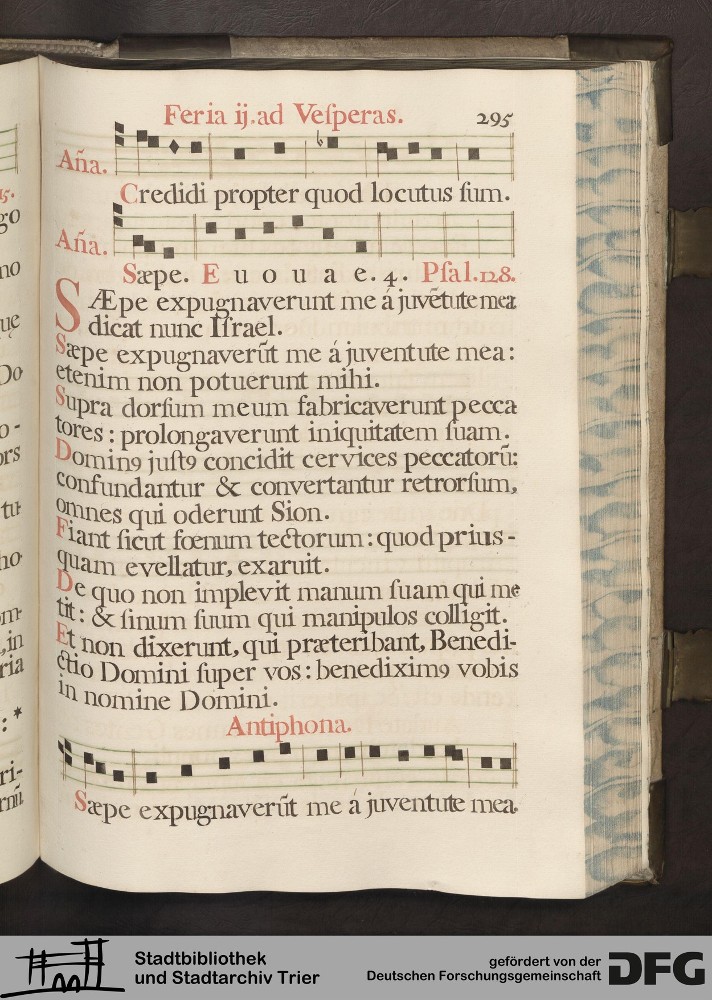 Feria ij. ad Veſperas. 295
Aña.
Credidi propter quod locutus ſum.
Aña.
Sæpe. E u o u a e. 4. Pſal. 128.
SÆpe expugnaverunt me á juvẽtute mea
dicat nunc Iſrael.
Sæpe expugnaverũt me á juventute mea:
etenim non potuerunt mihi.
Supra dorſum meum fabricaverunt pecca
tores: prolongaverunt iniquitatem ſuam.
Dominꝰ juſtꝰ concidit cervices peccatorũ:
confundantur & convertantur retrorſum,
omnes qui oderunt Sion.
Fiant ſicut fœnum tectorum: quod prius-
quam evellatur, exaruit.
De quo non implevit manum ſuam qui me
tit: & ſinum ſuum qui manipulos colligit.
Et non dixerunt, qui præteribant, Benedi-
ctio Domini ſuper vos: benediximꝰ vobis
in nomine Domini.
Antiphona.
Sæpe expugnaverũt me á juventute mea.
Stadtbibliothek
und Stadtarchiv Trier
gefördert von der
Deutschen Forschungsgemeinschaft
DFG